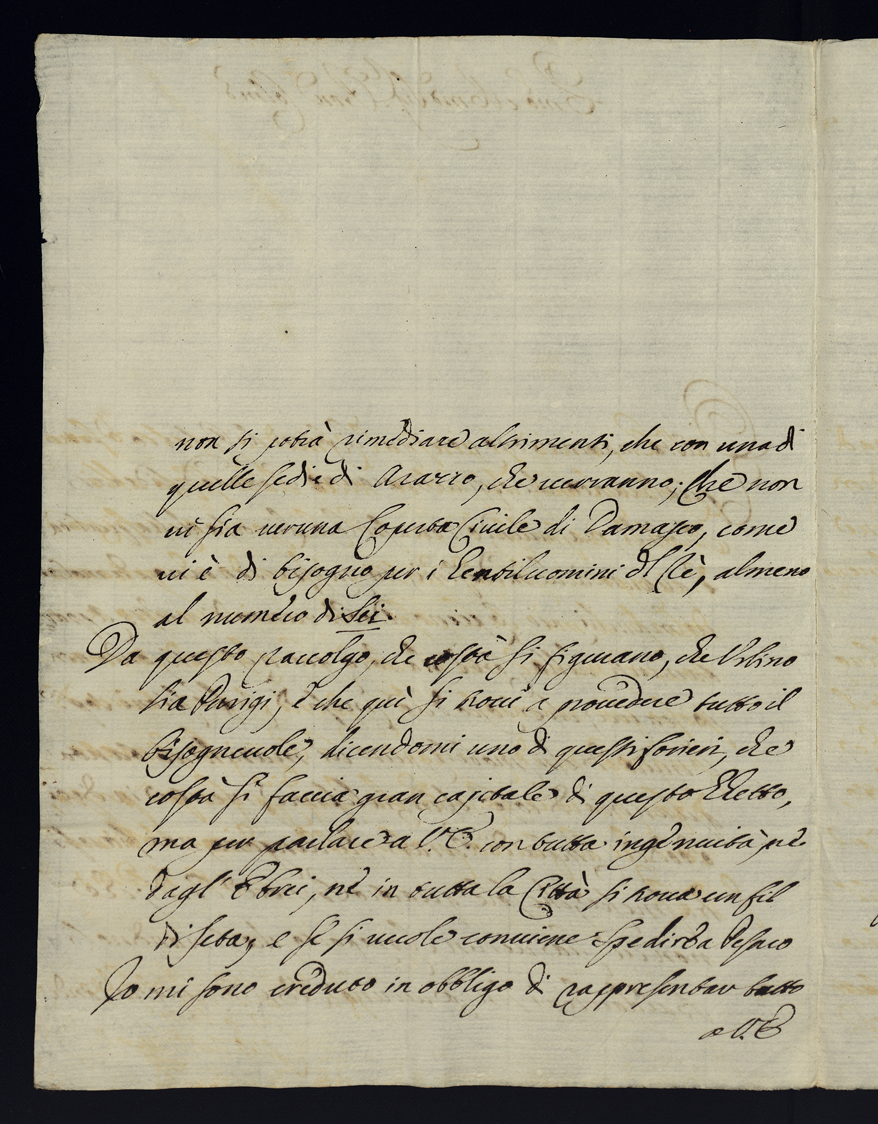 non si potrà rimediare altrimenti, che con una di
quelle sedie di Arazzo, che verranno; Che non
vi sia veruna Coperta Civile di Damasco, come
vi è di bisogno per i Gentiluomini del Rè, almeno
al numero di Sei
Da questo raccolgo, che costà si figurano, che Urbino
sia Parigi, e che quì si trovi a provedere tutto il
bisognevole, dicendomi uno di questi forieri, che
costà si faccia gran capitale di questo Ghetto,
ma per parlare a V. E. con tutta ingenuità, nè
dagl' Ebrei, nè in tutta la Città si trova un fil
di seta, e se si vuole conviene spedir a Pesaro
Io mi sono creduto in obbligo di rappresentar tutto
a V. E